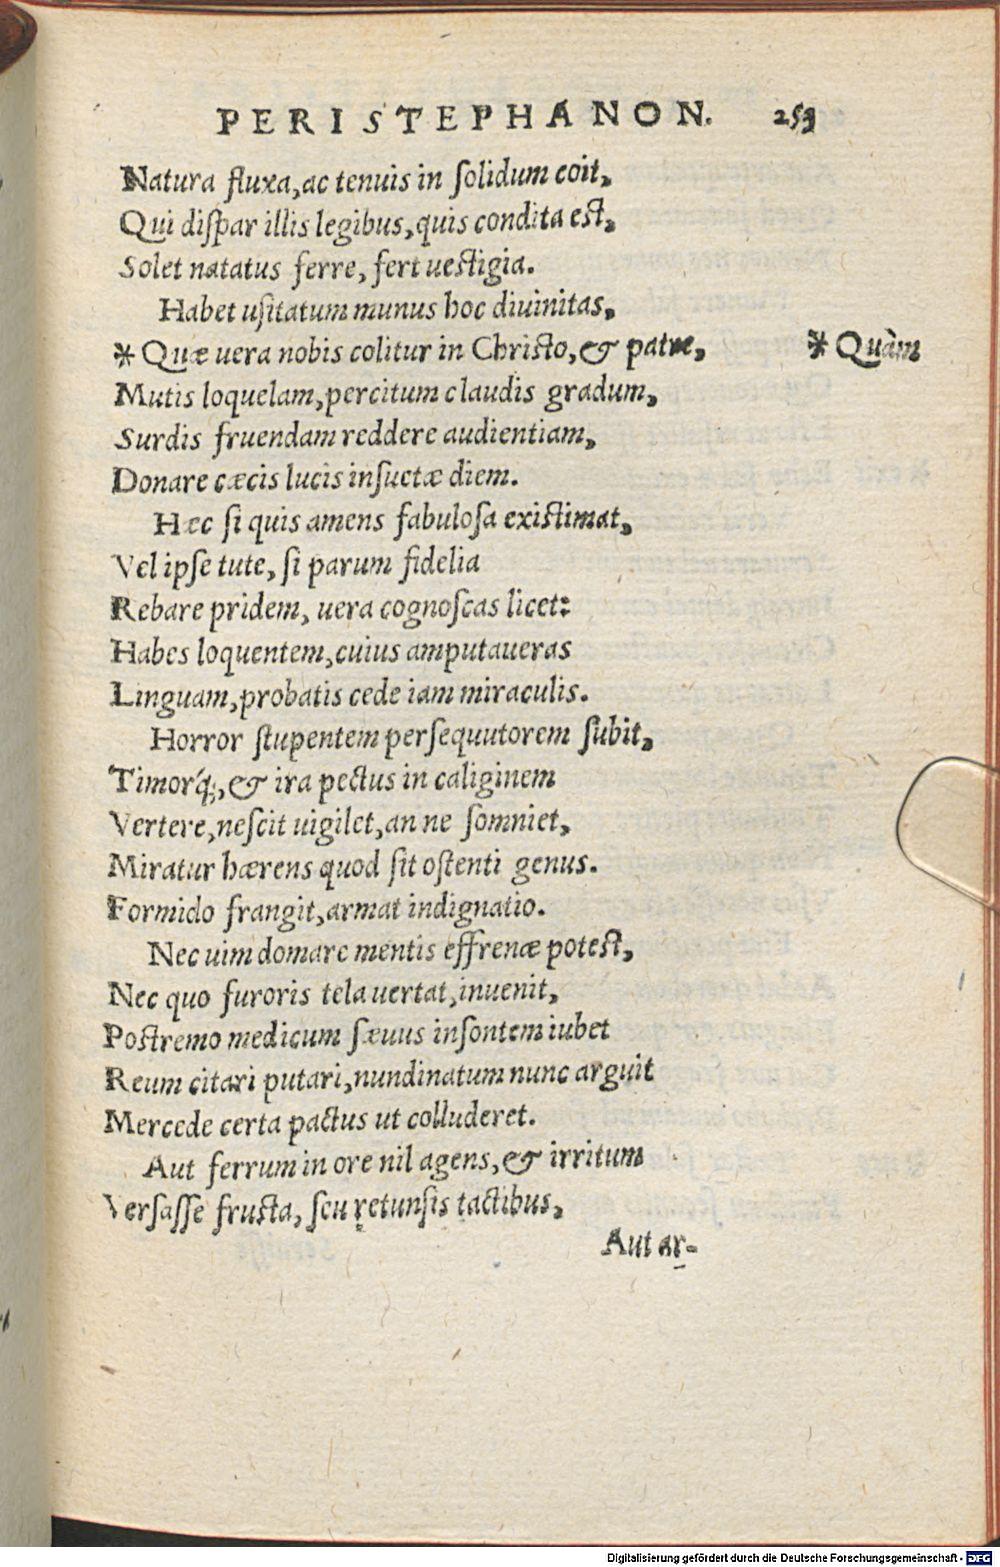 PERISTEPHANON. 253
Natura fluxa, ac tenuis in ſolidum coit,
Qui diſpar illis legibus, quis condita eſt,
Solet natatus ferre, fert ueſtigia.
Habet uſitatum munus hoc diuinitas,
* Quæ uera nobis colitur in Chriſto, & patre, * Quàm
Mutis loquelam, percitum claudis gradum,
Surdis fruendam reddere audientiam,
Donare cæcis lucis inſuetæ diem.
Hæc ſi quis amens fabuloſa exiſtimat,
Vel ipſe tute, ſi parum fidelia
Rebare pridem, uera cognoſcas licet:
Habes loquentem, cuius amputaueras
Linguam, probatis cede iam miraculis.
Horror ſtupentem perſequutorem ſubit,
Timorq́;, & ira pectus in caliginem
Vertere, neſcit uigilet, an ne ſomniet,
Miratur hærens quod ſit oſtenti genus.
Formido frangit, armat indignatio.
Nec uim domare mentis effrenæ poteſt,
Nec quo furoris tela uertat, inuenit,
Poſtremo medicum ſæuus inſontem iubet
Reum citari putari, nundinatum nunc arguit
Mercede certa pactus ut colluderet.
Aut ferrum in ore nil agens, & irritum
Verſaſſe fruſta, ſeu retunſis tactibus,
Aut ar-
Digitalisierung gefördert durch die Deutsche Forschungsgemeinschaft - DFG